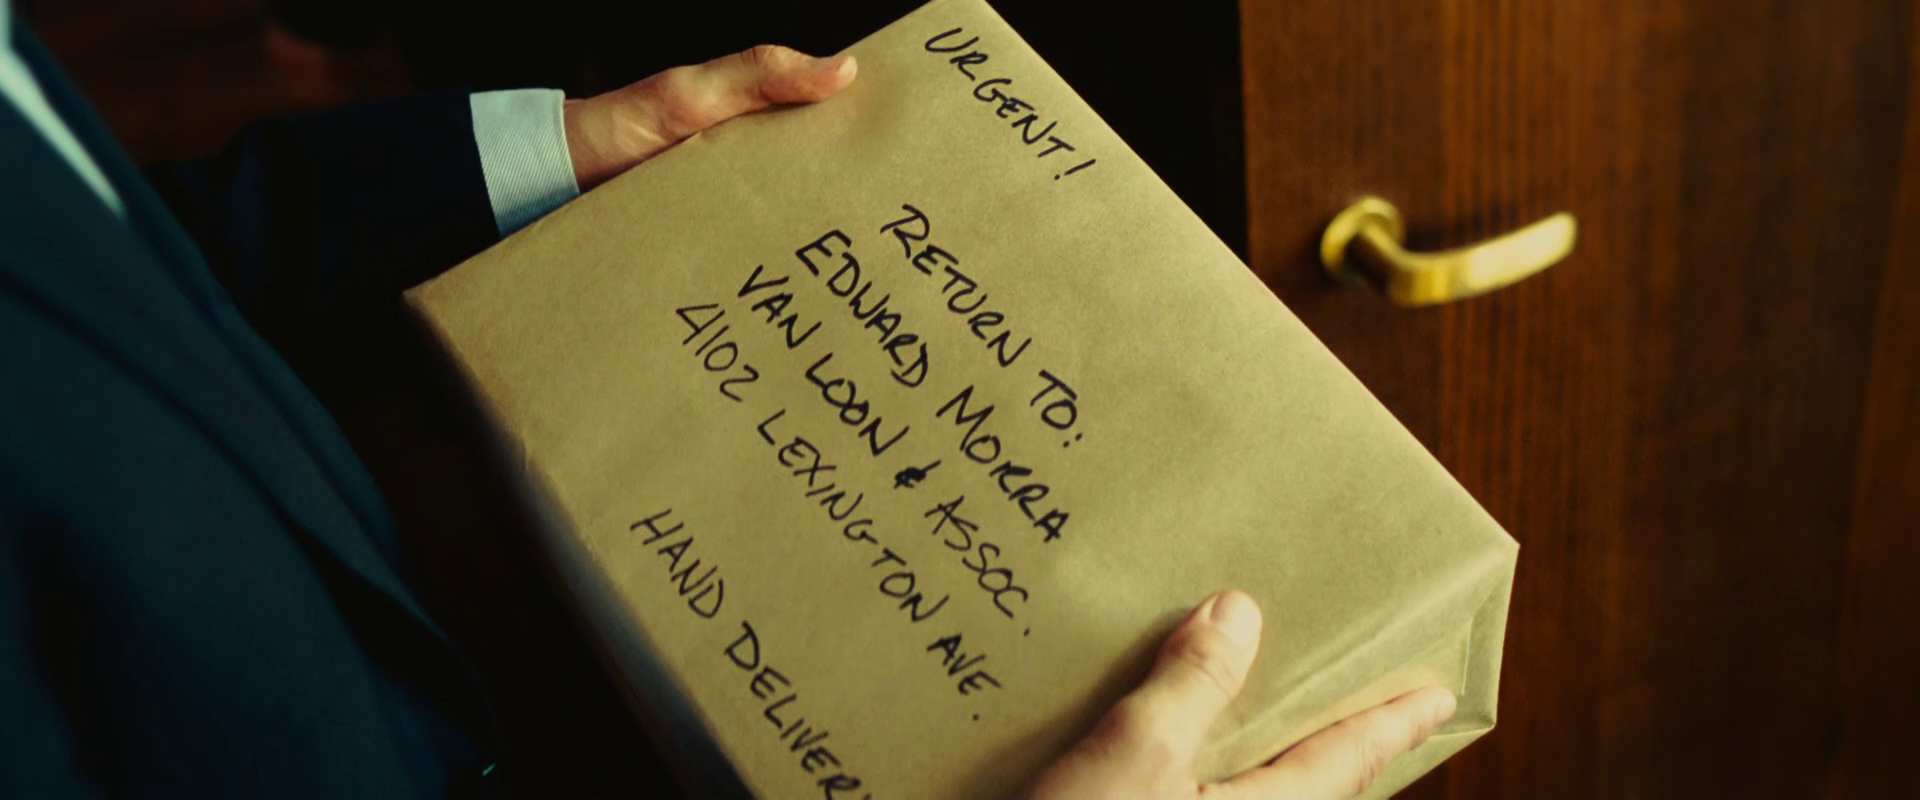 URGENT!
RETURN TO:
EDWARD MORRA
VAN LOON & ASSOC.
4102 LEXINGTON AVE.
HAND DELIVERY